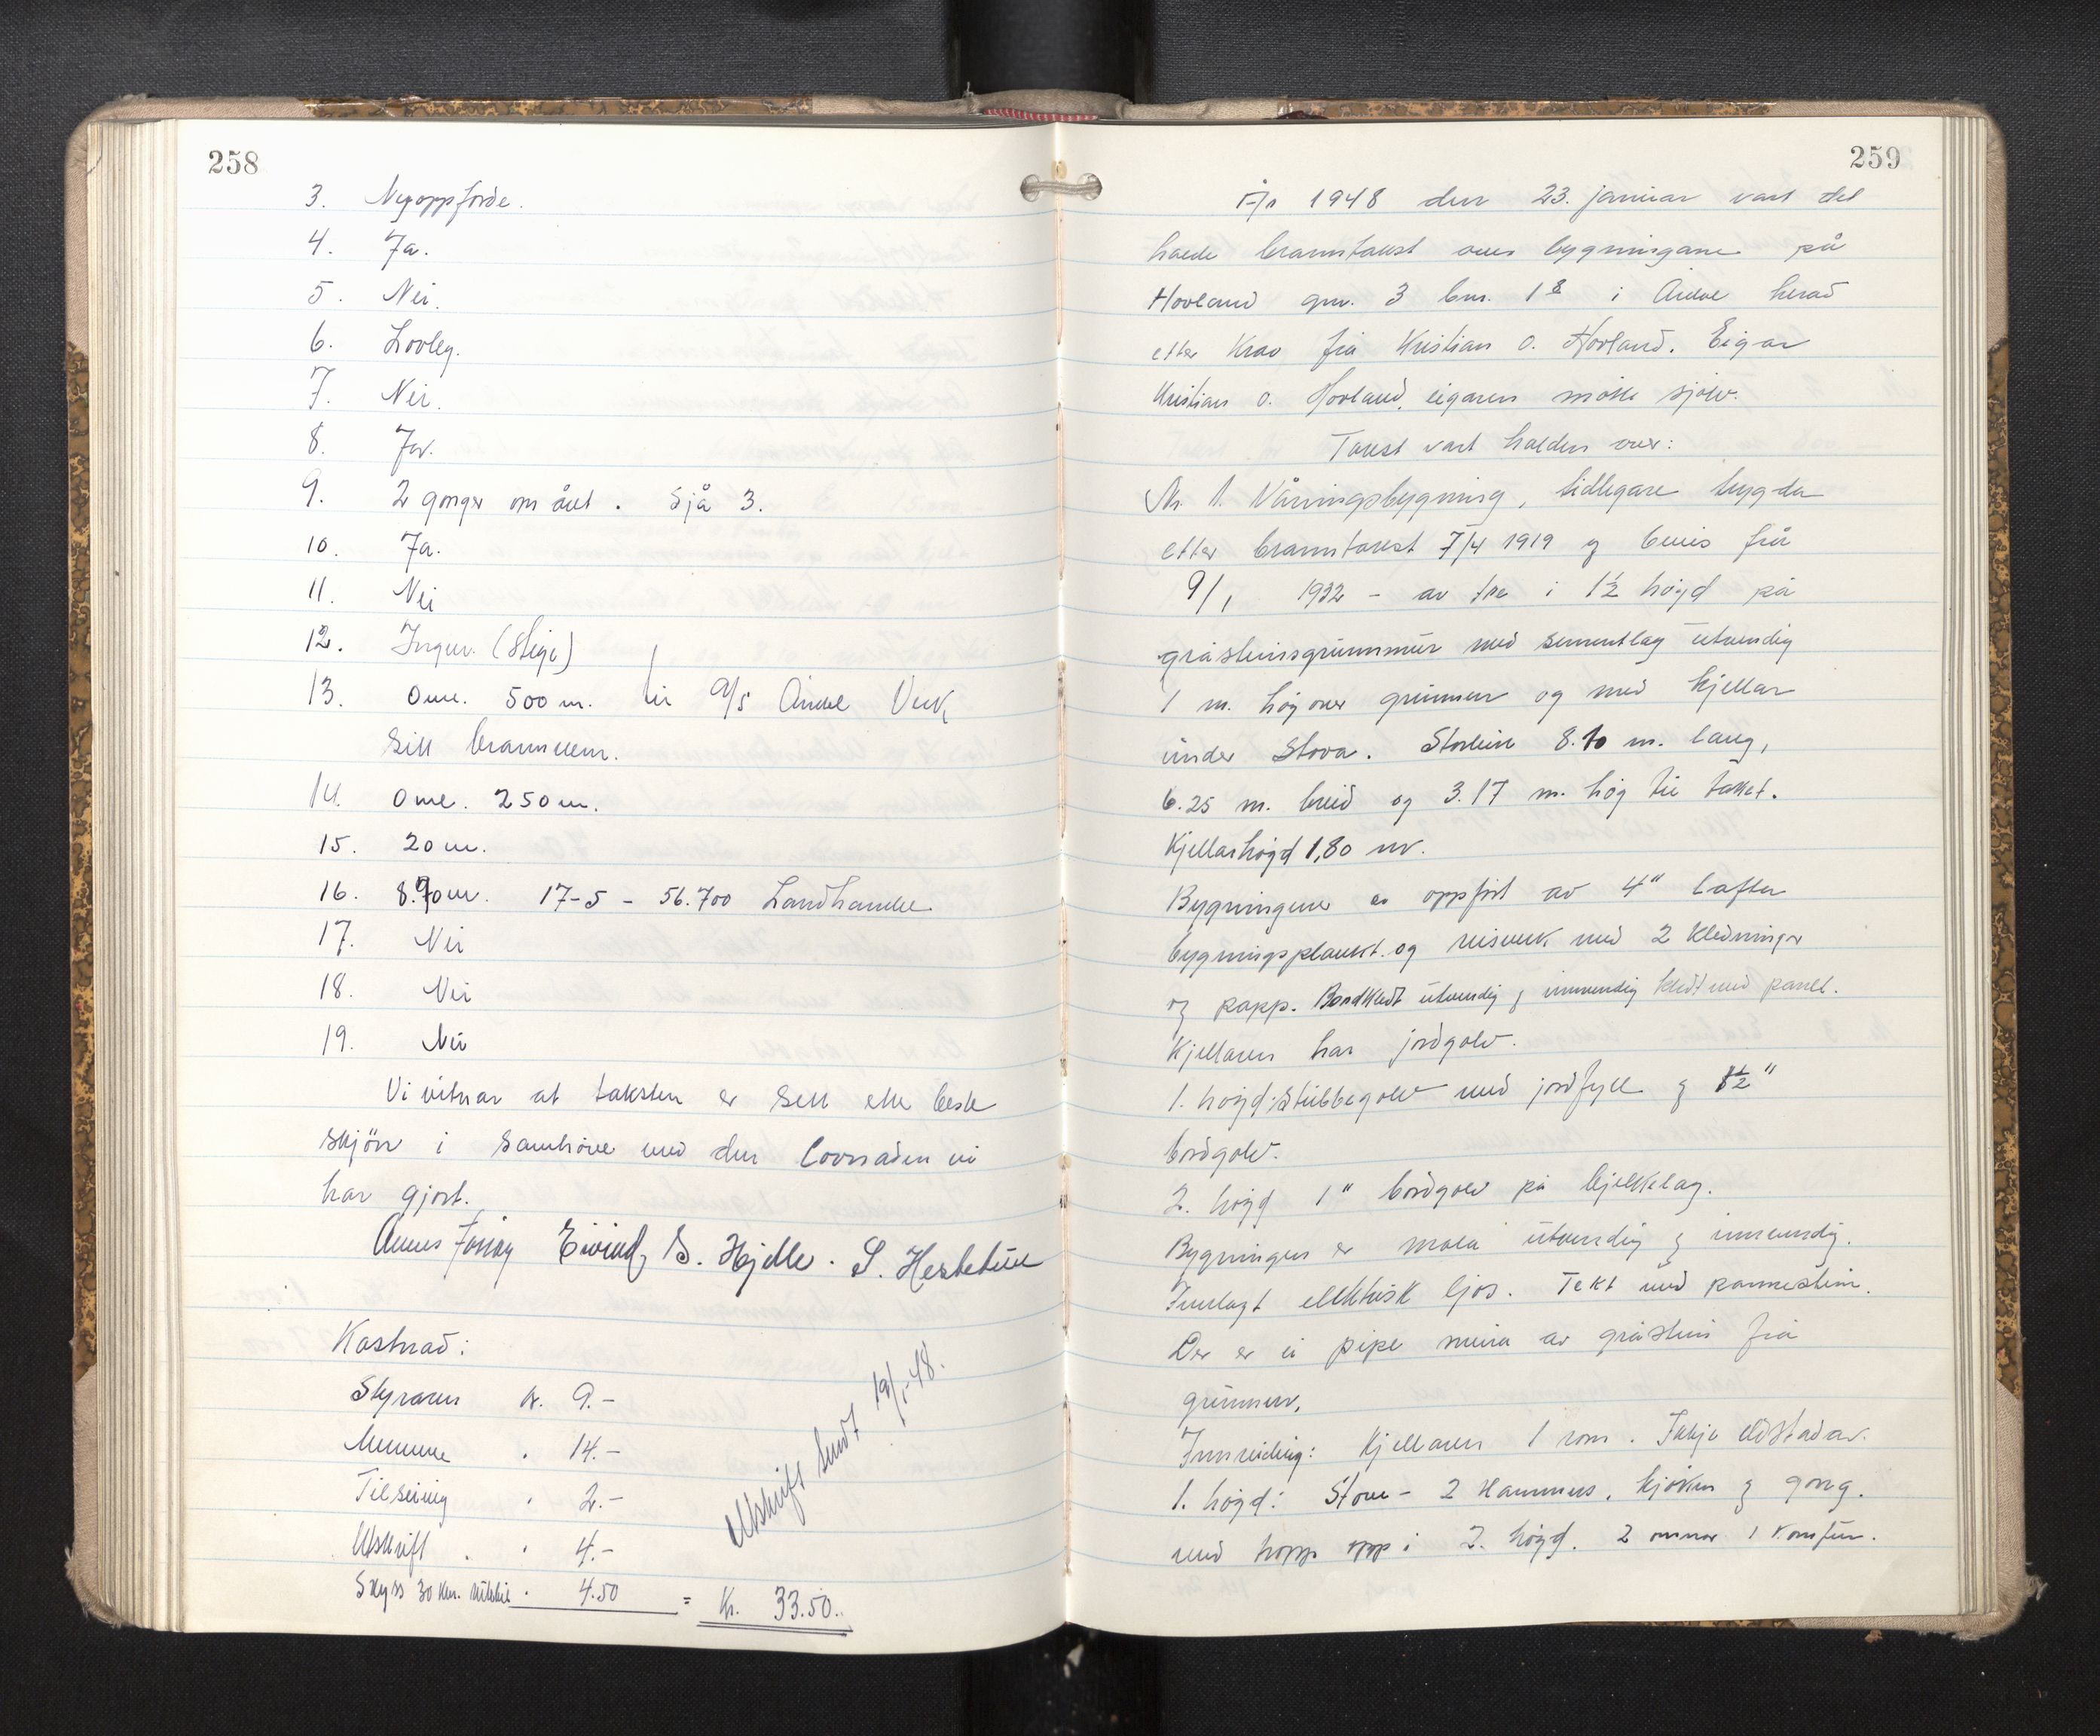 258
3. Nyoppførde.
4. Ja.
5. Nei.
6. Lovleg.
7. Nei.
8. Ja.
9. 2 gonger om året. Sjå 3.
10. Ja.
11. Nei
12. Ingen. (Stige)
13. Oml. 500 m. til A/S Årdal Verk
sitt brannvern.
14. Oml. 250 m.
15. 20 m.
16. 8.90 m. 17-5 - 56.700 Landhandel.
17. Nei
18. Nei
19. Nei
Vi vitnar at taksten er sett etter beste
skjön i samhöve med den lovnaden vi
har gjort.
Eivind S. Hjelle. S. Hestetun
Kostnad:
Styraren kr. 9.-
14.-
Tilseiing " 2.-
Utskrift " " 4.-
Skyss 30 km. 4.50 = Kr. 33.50.
Utskrift sendt 19/1-48.
259
År 1948 den 23. januar vart det
halde branntakst over bygningane på
Hovland gnr. 3 bnr. 18 i Årdal herad
etter krav frå Kristian O. Hovland. Eigar
Kristian O. Hovland, eigaren møtte sjølv.
Takst vart halden over:
Nr. 1. Våningsbygning, tidlegare trygda
etter branntakst 7/4 1919 og bevis frå
9/1 1932 - av tre i 1½ høgd på
gråsteinsgrunnmur med sementlag utvendig
1 m. høg over grunnen og med kjellar
under stova. Storleik 8.10 m. lang,
6.25 m. breid og 3.17 m. høg til taket.
Kjellarhøgd 1,80 m.
Bygningen er oppført av 4" lafta
bygningsplankt. og reisverk med 2 kledningar
og papp. Bordkledt utvendig og innvendig kledt med panel.
Kjellaren har jordgolv.
1. høgd: Stubbegolv med jordfyll og 1½"
bordgolv.
2. høgd 1" bordgolv på bjelkelag.
Bygningen er måla utvendig og innvendig.
Innlagt elektrisk ljos. Tekt med pannestein.
Der er ei pipe mura av gråstein frå
grunnen.
Innreiing: Kjellaren 1 rom. Inkje eldstadar.
1. høgd: Stove - 2 kammers, kjøken og gong.
med tropp opp i 2. høgd. 2 omnar 1 komfur.